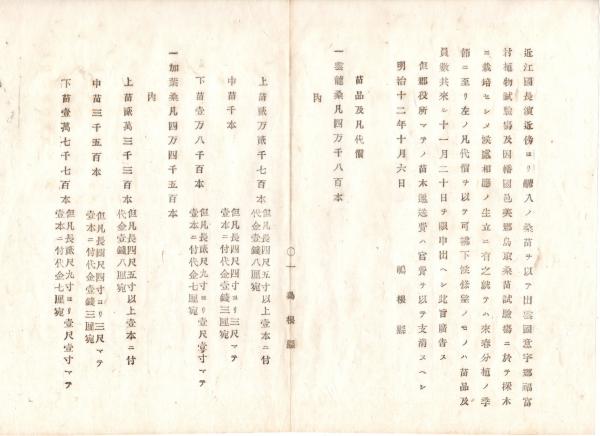 近江國長濱近傍ヨリ購入ノ桑苗ヲ以テ出雲國意宇郡福富
村植物試驗場及因幡國邑美郡鳥取桑苗試驗場ニ於テ採木
ニ栽培セシメ候處相應ノ生立ニ有之就テハ來春分植ノ季
節ニ至リ左ノ凡代價ヲ以テ可拂下候條望ノモノハ苗品及
員數共來ル十一月二十日ヲ限申出ヘシ此旨廣告ス
但郡役所マテノ苗木運送費ハ官費ヲ以テ支消スヘシ
明治十二年十月六日
島根縣
苗品及凡代價
一雲龍桑凡四万千八百本
内
〇一
島根縣
上苗貳万貳千七百本
但凡長四尺五寸以上壹本ニ付
代金壹錢八厘宛
中苗千本
但凡長四尺四寸ヨリ三尺マテ
壹本ニ付代金壹錢三厘宛
下苗壹万八千百本
但凡長貳尺九寸ヨリ壹尺壹寸マテ
壹本ニ付代金七厘宛
一加葉桑凡四万四千五百本
内
上苗貳萬三千三百本
但凡長四尺五寸以上壹本ニ付
代金壹錢八厘宛
中苗三千五百本
但凡長四尺四寸ヨリ三尺マテ
壹本ニ付代金壹錢三厘宛
下苗壹萬七千七百本
但凡長貳尺九寸ヨリ壹尺壹寸マテ
壹本ニ付代金七厘宛